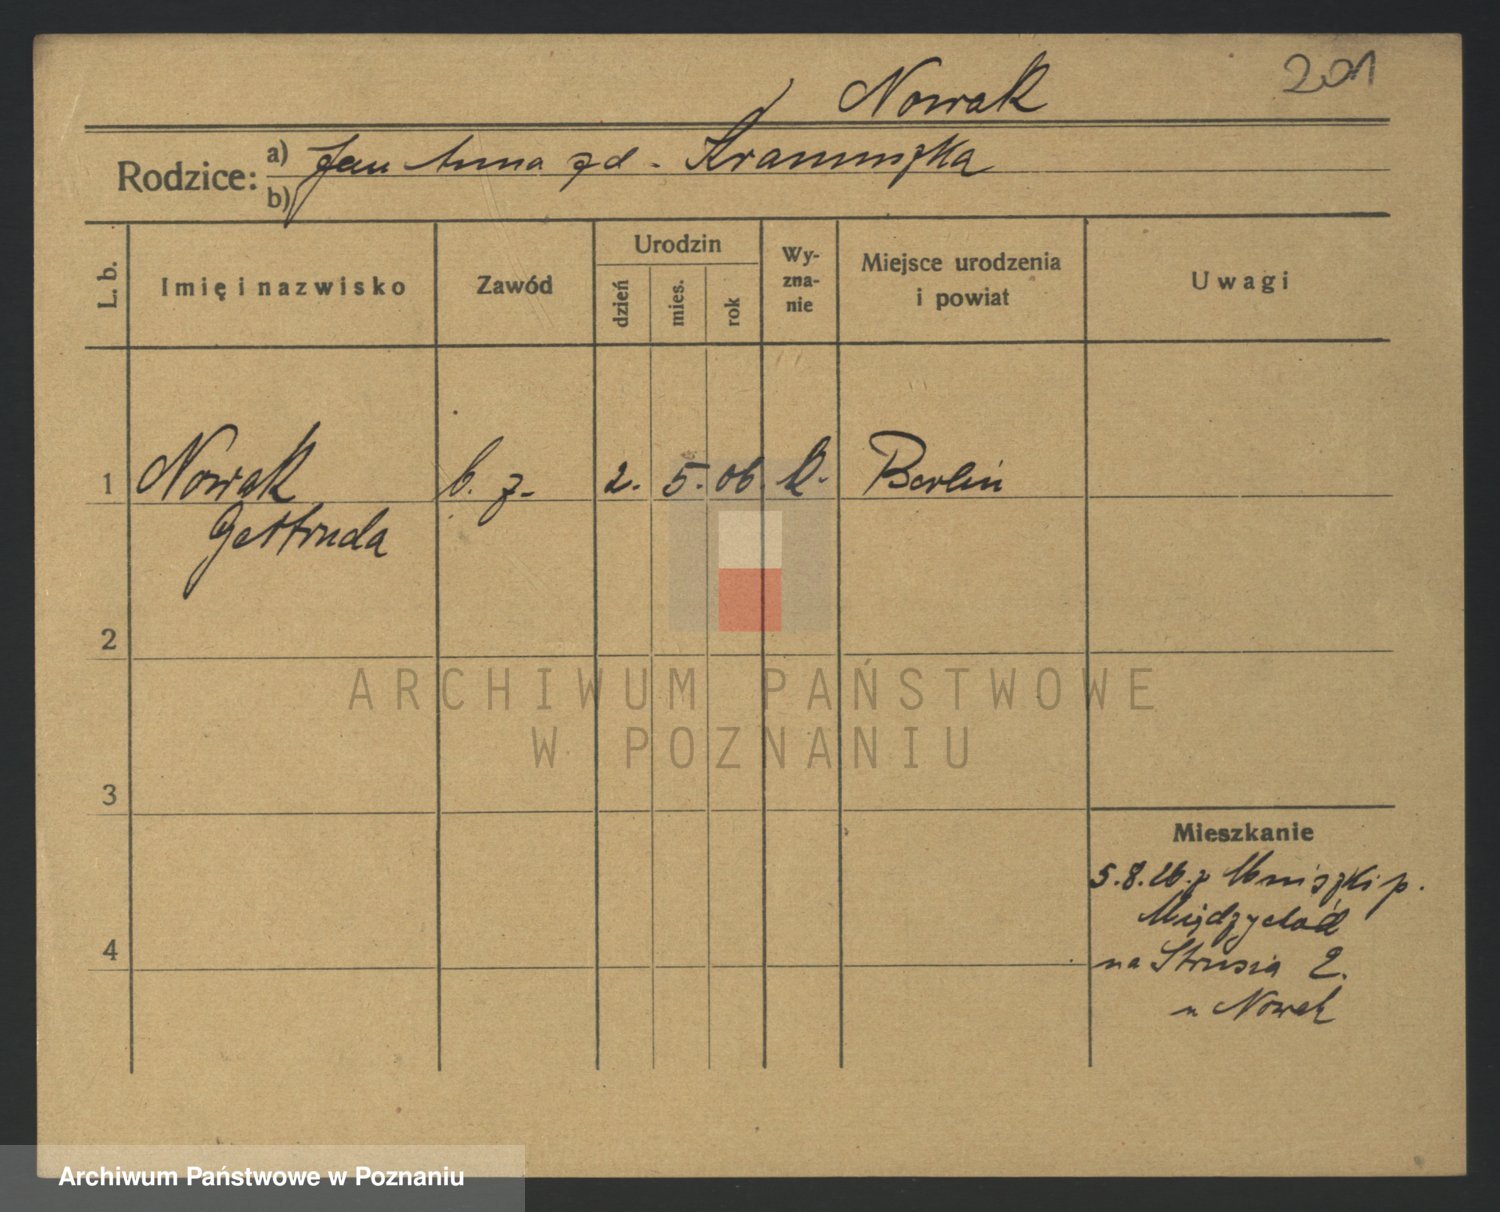 Nowak
201
Rodzice: a) Jan Anna zd.
b)
L. b.
Imię i nazwisko
Zawód
Urodzin
dzień
mies.
rok
Wy-
zna-
nie
Miejsce urodzenia
i powiat
Uwagi
1 Nowak b. z. 2. 5. 06. k. Berlin
Gertruda
2
3
4
ARCHIWUM PAŃSTWOWE
W POZNANIU
Mieszkanie
5.8.26. z Mniszki p.
Międzychód
na Strusia 2.
u Nowak
Archiwum Państwowe w Poznaniu